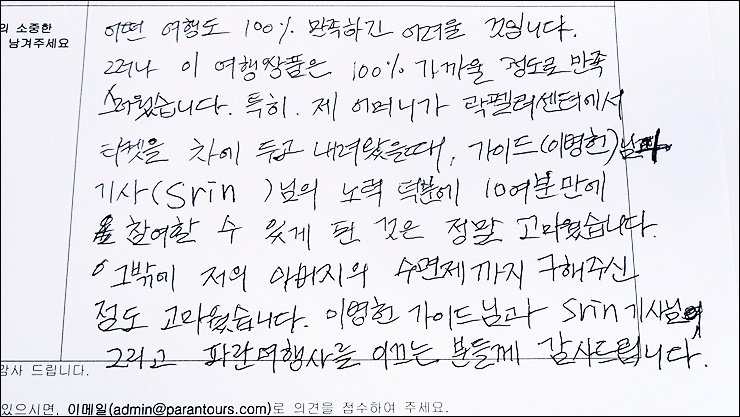 의 소중한
남겨주세요
어떤 여행도 100% 만족하긴 어려울 것입니다.
그러나 이 여행상품은 100% 가까울 정도로 만족
스러웠습니다. 특히. 제 어머니가 락펠러센터에서
티켓을 차에 두고 내려왔을때, 가이드(이명헌)님과
기사(Srin )님의 노력 덕분에 10여분만에
참여할 수 있게 된 것은 정말 고마웠습니다.
그밖에 저의 아버지의 수면제까지 구해주신
점도 고마웠습니다. 이명헌 가이드님과 Srin기사님
그리고 파란여행사를 이끄는 분들께 감사드립니다.
감사 드립니다.
있으시면, 이메일(admin@parantours.com)로 의견을 접수하여 주세요.